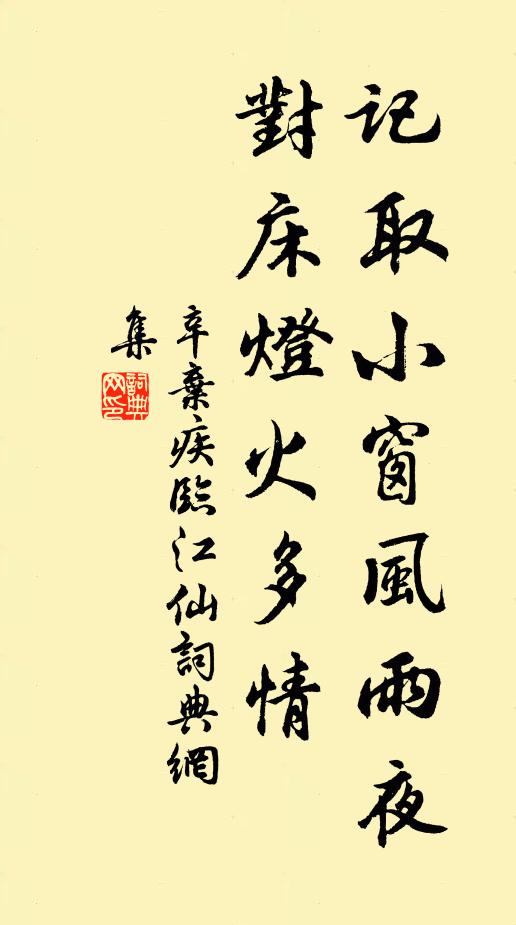 記取小窗風雨夜
對床燈火多情
辛棄疾臨江仙詞典網
集
詞典
网印